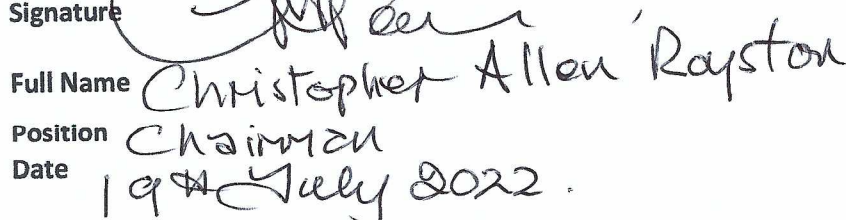 Signature
Full Name Christopher Allen Royston
Position Chairman
Date 19th July 2022.